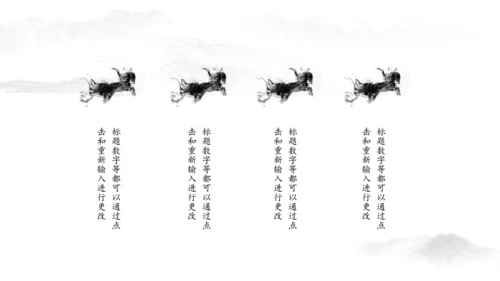 标题数字等都可以通过点
击和重新输入进行更改
标题数字等都可以通过点
击和重新输入进行更改
标题数字等都可以通过点
击和重新输入进行更改
标题数字等都可以通过点
击和重新输入进行更改